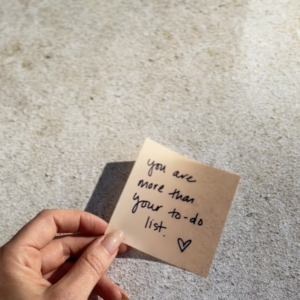 you are
more than
your to-do
list.
♡